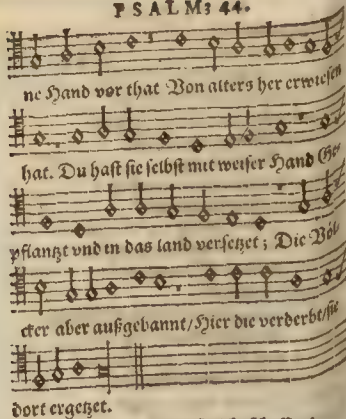 PSALM; 44.
ne Hand vor that Von alters her erwiesen
hat. Du hast sie selbst mit weiser Hand Ge⸗
pflantzt vnd in das land versetzet; Die Völ⸗
cker aber außgebannt/Hier die verderbt/sie
dort ergetzet.